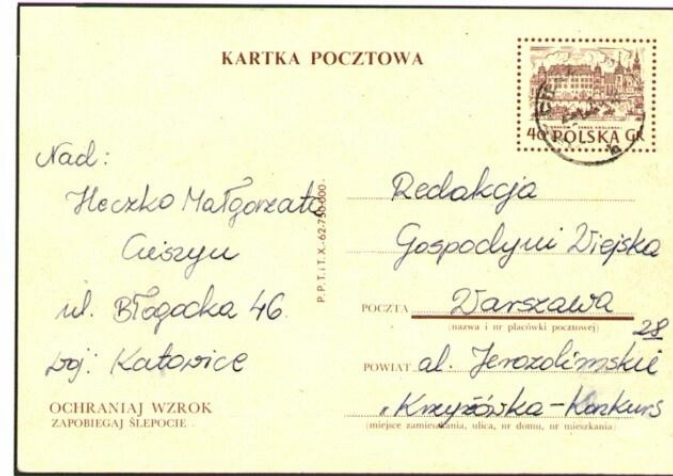 KARTKA POCZTOWA
40 POLSKA GR
Nad:
Heczko Małgorzata
Cieszyn
ul. Błogocka 46.
woj: Katowice
OCHRANIAJ WZROK
ZAPOBIEGAJ ŚLEPOCIE
P.P.T.i T. X.-62-750.000.
Redakcja
Gospodyni Wiejska
POCZTA Warszawa
(nazwa i nr placówki pocztowej)
28
POWIAT al. Jerozolimskie
"Krzyżówka-Konkurs
(miejsce zamieszkania, ulica, nr domu, nr mieszkania)